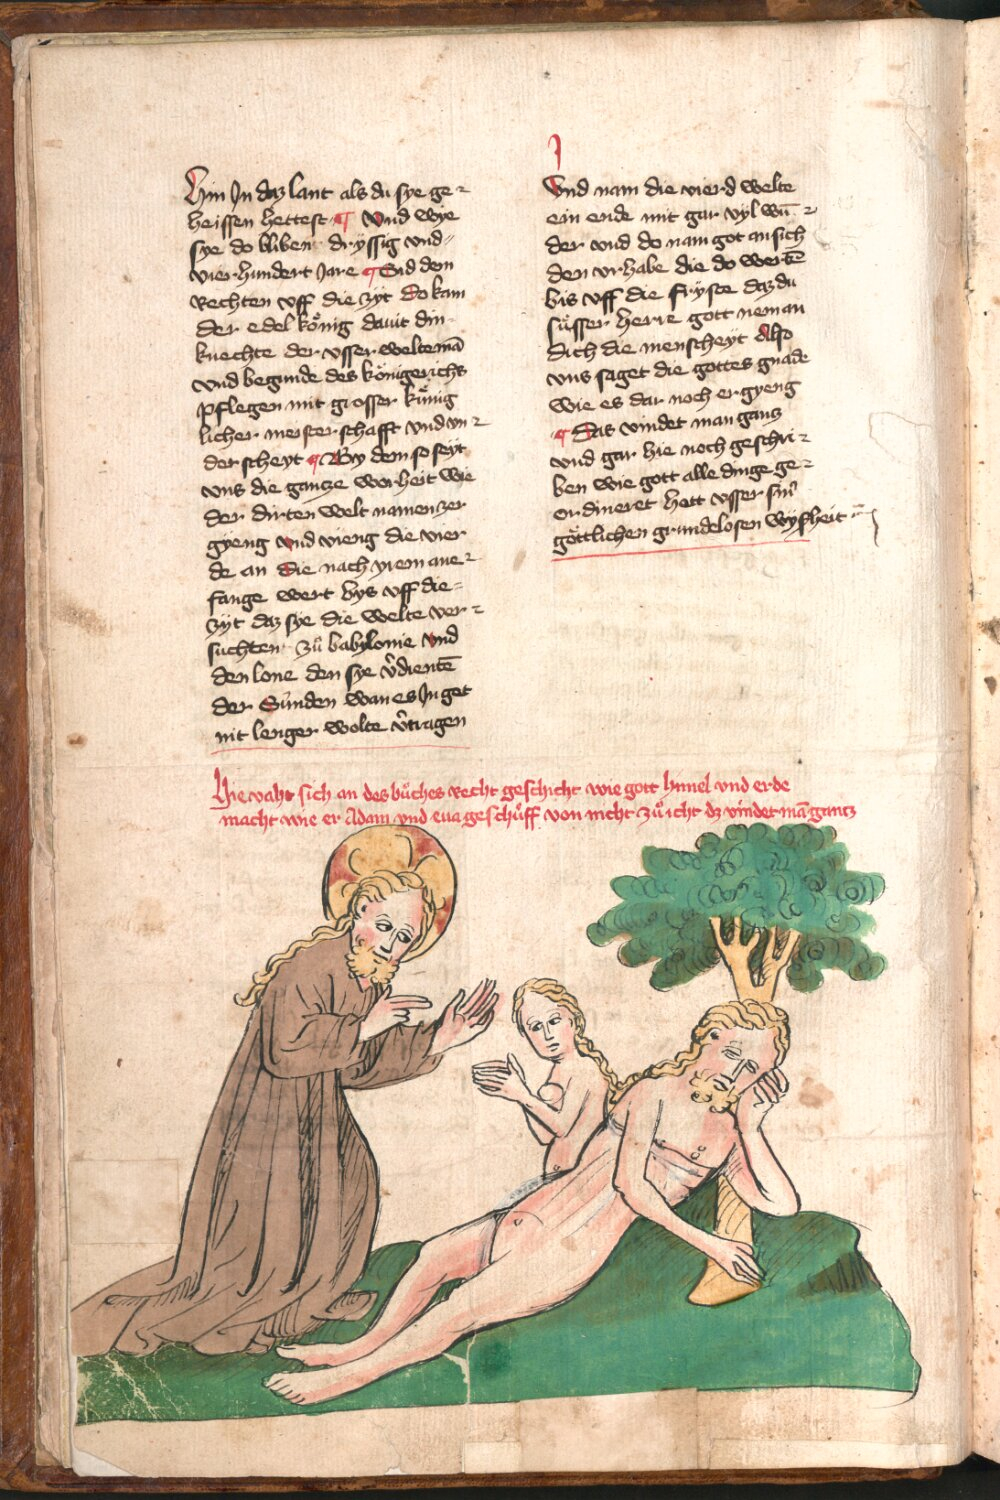 Hin In daz lant als du sye ge⸗
heissen hettest ¶ Vnd wye
sye do bliben dryssig vnd⸗
vierhundert Jare ¶ Sid dem
Rechten vff die zyt do kam
der edel kőnig dauit din
knechte der vsser welte mā
vnd begunde des kőnigerichs
pflegen mit grosser kűnig
licher meisterschafft vnd vn⸗
derscheyt ¶ By dem so seyt
vns die gantze worheit wie
der dirten welt namen zer
gyeng vnd vieng die vier
de an die nach yrem ane⸗
fange wert bys vff die⸗
zyt daz sye die welte ver⸗
suchten zů babylonie vnd
den lone den sye v̄dientē
der Sünden wan es In get
nit lenger wolte v̄tragen
J
Vnd nam die vierd welte
ein ende mit gar vyl wū⸗
der vnd do nam got an sich
den vrhabe die do wertē
bis vff die fryste daz du
sůsser herre gott neman
dich die menscheyt Also
vns saget die gottes gnade
wie es dar noch ergyeng
¶ Das vindet man gantz
vnd gar hie noch geschri⸗
ben wie gott alle dinge ge⸗
ordineret hett vsser sinr
gőttlichen grundelosen wyßheit
Hie vahet sich an des bůches recht geschicht wie gott himel vnd erde
macht wie er Adam vnd eua geschůff von nicht zů icht dz vindet mā gantz